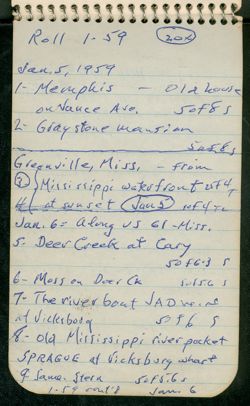 Roll 1-59 20x
Jan. 5, 1959
1- Memphis - Old house
on Vance Ave. 50 f 8 s
2- Graystone mansion
50 f 8 s
Greenville, Miss. - from
3 Mississippi waterfront
4 at sunset Jan 5 50 f 4
Jan. 6 = Along US 61-Miss.
5- Deer Creek at Cary
6- Moss on Deer Ck
7- The river boat
at Vicksburg 50 f 6 S
8- old Mississippi river packet
SPRAGUE at Vicksburg wharf
9 Same. Stern 50 f 5.6 s
1-59 roll 8 Jan. 6